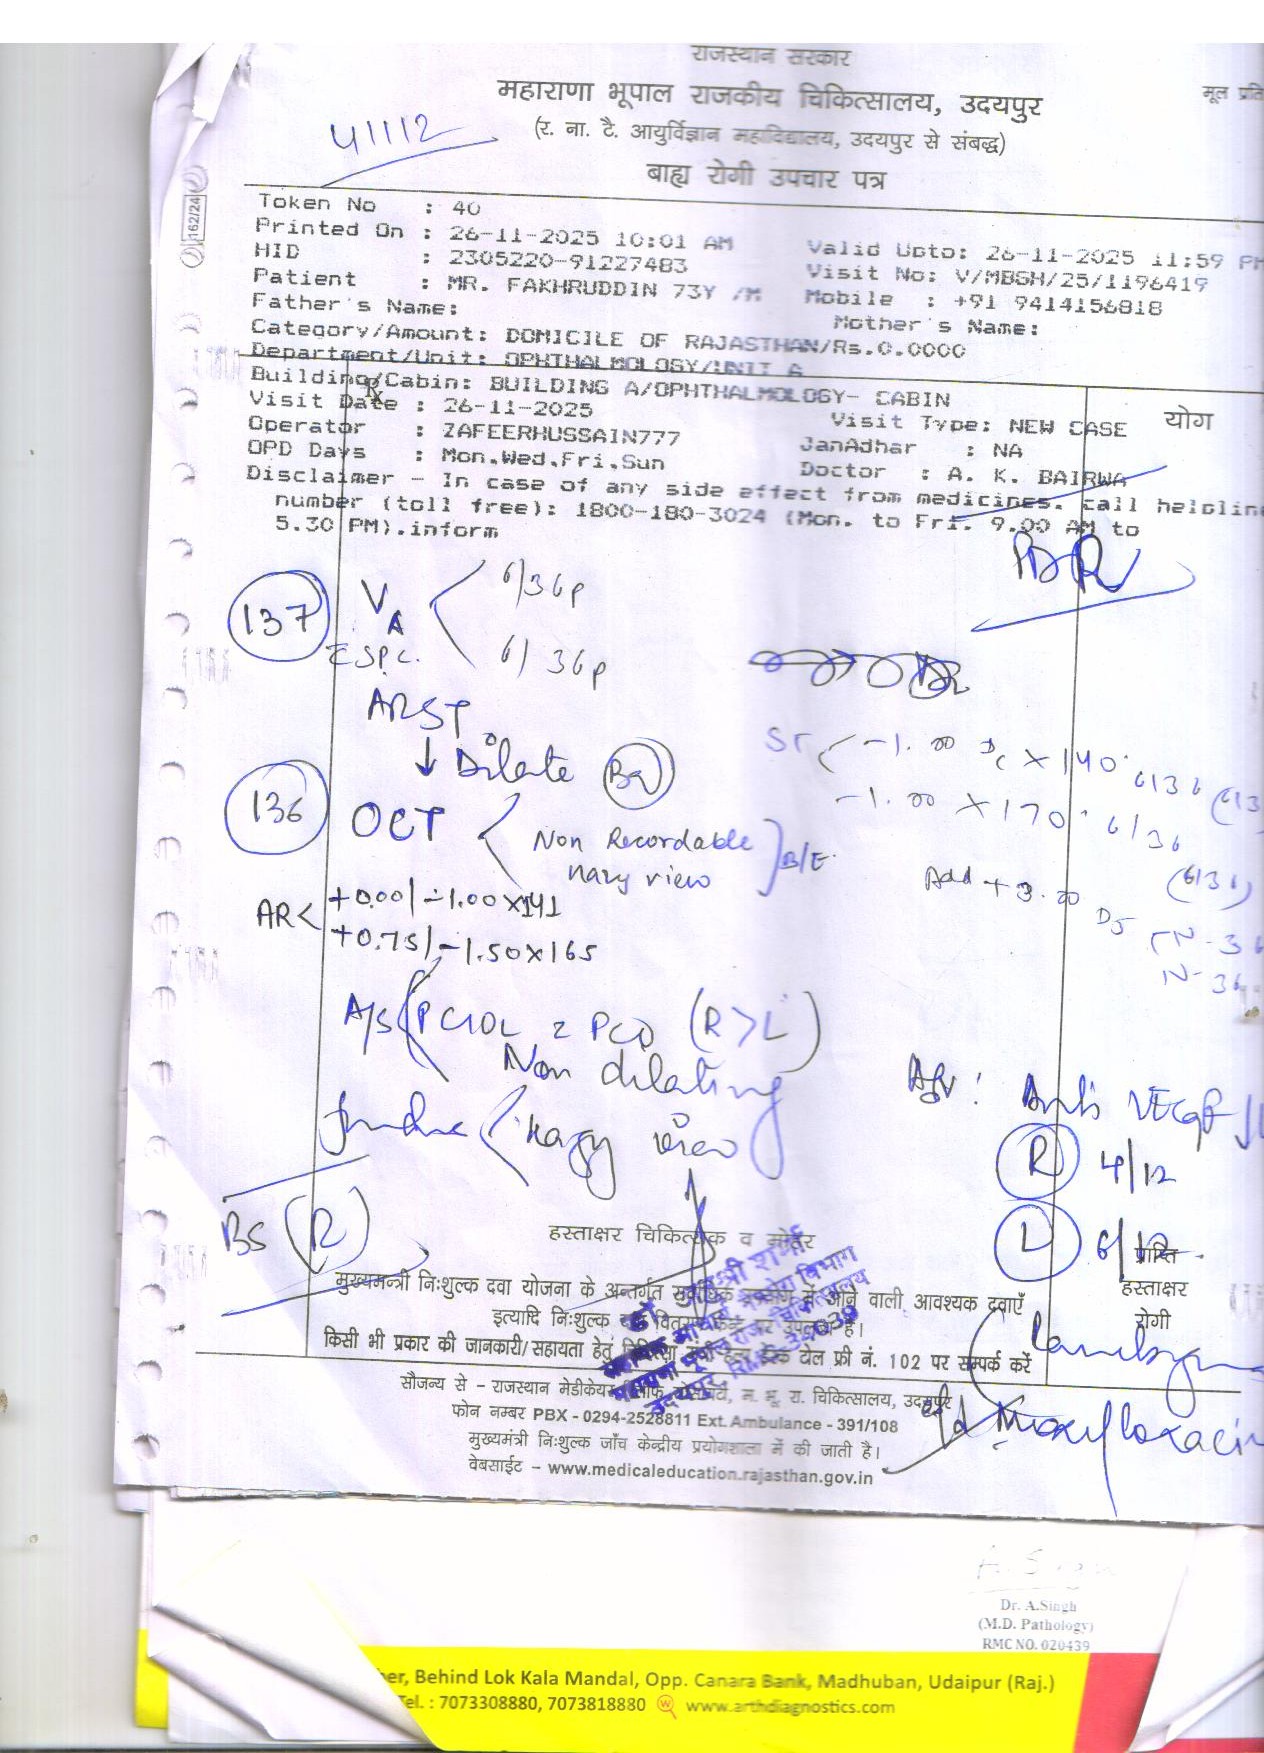 राजस्थान सरकार
महाराणा भूपाल राजकीय चिकित्सालय, उदयपुर
मूल प्रति
(र. ना. टै. आयुर्विज्ञान महाविद्यालय, उदयपुर से संबद्ध)
बाह्य रोगी उपचार पत्र
162/24
Token No : 40
Printed On : 26-11-2025 10:01 AM Valid Upto: 26-11-2025 11:59 PM
HID : 2305220-91227483 Visit No: V/MBGH/25/1196419
Patient : MR. FAKHRUDDIN 73Y /M Mobile : +91 9414156818
Father's Name: Mother's Name:
Category/Amount: DOMICILE OF RAJASTHAN/Rs.0.0000
Department/Unit: OPHTHALMOLOGY/UNIT A
Building/Cabin: BUILDING A/OPHTHALMOLOGY- CABIN
Rx
योग
Visit Date : 26-11-2025 Visit Type: NEW CASE
Operator : ZAFEERHUSSAIN777 JanAdhar : NA
OPD Days : Mon,Wed,Fri,Sun Doctor : A. K. BAIRWA
Disclaimer - In case of any side effect from medicines, call helpline
number (toll free): 1800-180-3024 (Mon. to Fri. 9.00 AM to
5.30 PM).inform
137 VA 6/36p
6/36p
Dilate
-1.00 Dc x 140° 6/36
-1.00 x 170° 6/36
136 OCT Non Recordable B/E
Hazy view
Add +3.00 Ds
N-36
AR +0.00/-1.00x141
+0.75/-1.50x165
A/S PCIOL PCO (R>L)
Non dilating
Hazy view
Adv: Anti VEGF
R 4/12
L 6/12
BS (R)
हस्ताक्षर चिकित्सक व मोहर
प्राप्ति
हस्ताक्षर
रोगी
मुख्यमन्त्री निःशुल्क दवा योजना के अन्तर्गत में आने वाली आवश्यक दवाएँ
इत्यादि निःशुल्क पर उपलब्ध है।
किसी भी प्रकार की जानकारी/सहायता हेतु टोल फ्री नं. 102 पर सम्पर्क करें
सौजन्य से - राजस्थान मेडीकेयर सोसायटी, म. भू. रा. चिकित्सालय, उदयपुर
फोन नम्बर PBX - 0294-2528811 Ext. Ambulance - 391/108
Moxifloxacin
मुख्यमंत्री निःशुल्क जाँच केन्द्रीय प्रयोगशाला में की जाती है।
वेबसाईट - www.medicaleducation.rajasthan.gov.in
Dr. A.Singh
(M.D. Pathology)
RMC NO. 020439
Behind Lok Kala Mandal, Opp. Canara Bank, Madhuban, Udaipur (Raj.)
Tel. : 7073308880, 7073818880 www.arthdiagnostics.com